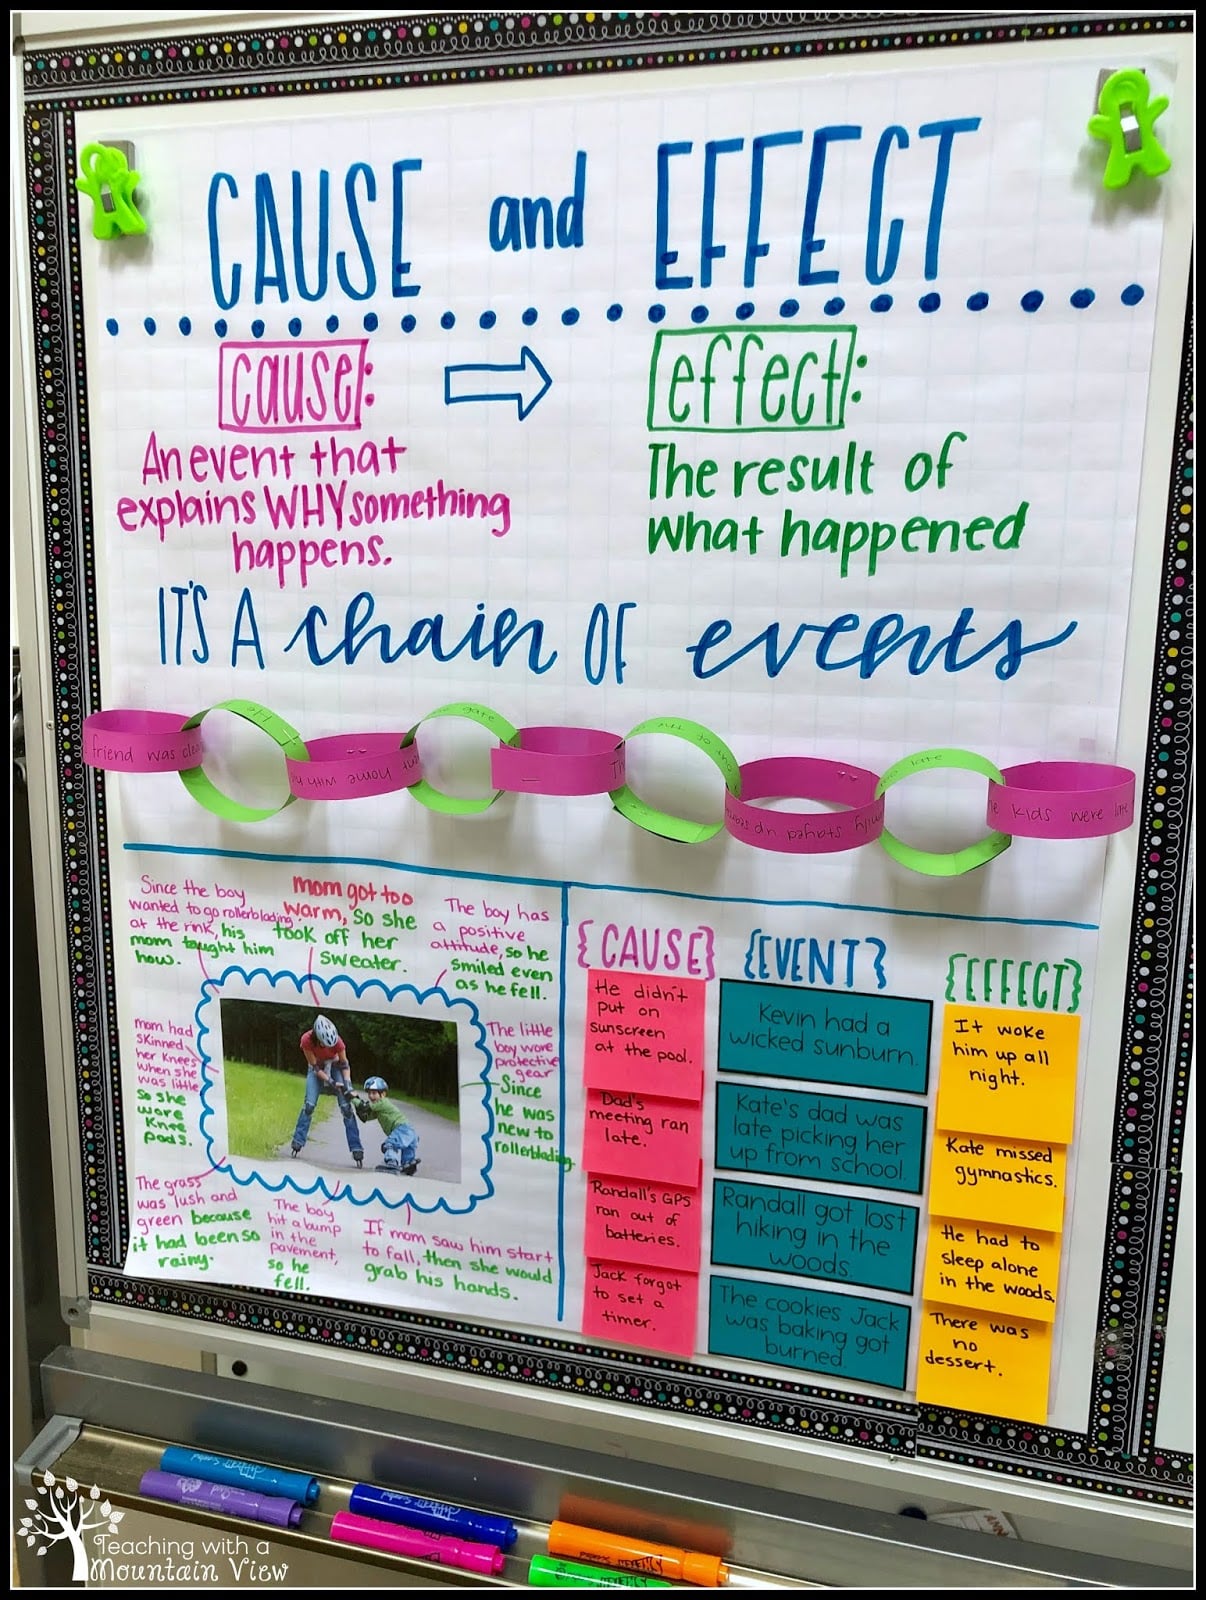 CAUSE and EFFECT
cause:
An event that
explains WHY something
happens.
effect:
The result of
what happened
IT'S A chain OF events
friend was
He
gate
home with
out of the
stayed up
late
kids were late
Since the boy
wanted to go rollerblading
at the rink, his
mom taught him
how.
mom got too
warm, so she
took off her
sweater.
The boy has
a positive
attitude, so he
smiled even
as he fell.
mom had
skinned
her knees
when she
was little
so she
wore
knee
pads.
The little
boy wore
protective
gear
Since
he was
new to
rollerblading.
The grass
was lush and
green because
it had been so
rainy.
The boy
hit a bump
in the
pavement,
so he
fell.
If mom saw him start
to fall, then she would
grab his hands.
{CAUSE}
He didn't
put on
sunscreen
at the pool.
Dad's
meeting ran
late.
Randall's GPS
ran out of
batteries.
Jack forgot
to set a
timer.
{EVENT}
Kevin had a
wicked sunburn.
Kate's dad was
late picking her
up from school.
Randall got lost
hiking in the
woods.
The cookies Jack
was baking got
burned.
{EFFECT}
It woke
him up all
night.
Kate missed
gymnastics.
He had to
sleep alone
in the woods.
There was
no
dessert.
Teaching with a
Mountain View